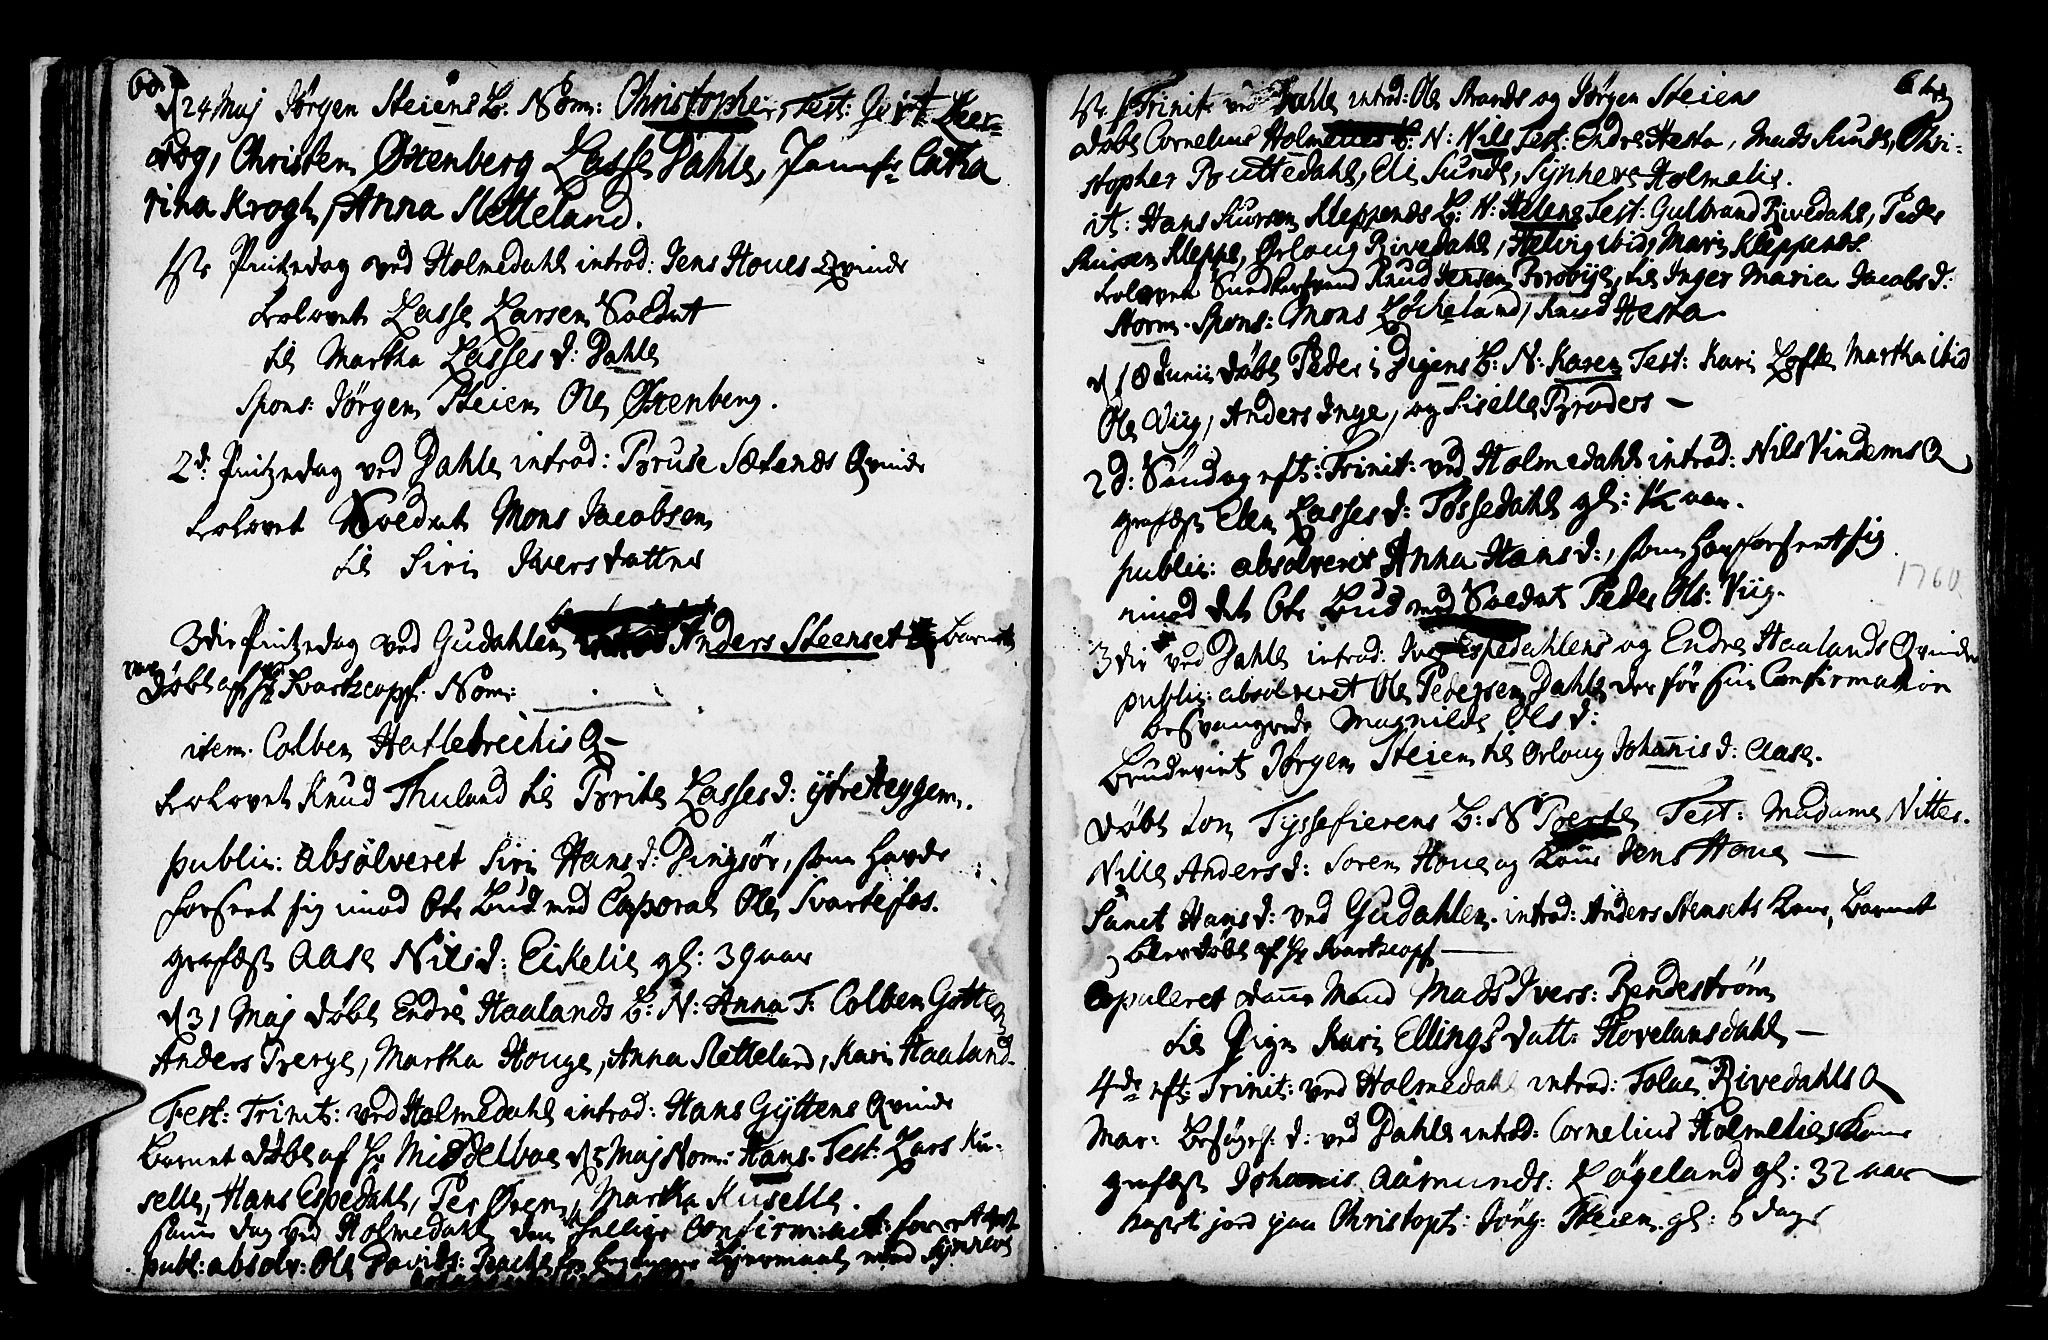 60.
d 24 Maj Jørgen Steiens B: Nom: Christopher, Test: Gert Leer-
dog, Christen Øxenberg Lasse Dahle, Jomfr: Catha
rina Krogh, Anna Sletteland.
1ste Pintzedag ved Holmedahl introd: Jens Houes Qvinde
trolovet Lasse Larsen Soldat
til Martha Lasses d: Dahle
Spons: Jørgen Steien Ole Øxenberg.
2d: Pintzedag ved Dahle introd: Bruse Sætenes Qvinde
trolovet Soldat Mons Jacobsen
til Siri Iversdatter
3die Pintzedag ved Gudahlen Anders Steenset barnet
døbt af Hr Svartzcopf. Nom:
item. Colben Hatlebrechis Q-
trolovet Knud Thuland til Brite Lasses d: ÿtre Heggem.
public: absolveret Siri Hans d: Dingsør, som havde
forseet sig imod 6te Bud med Caporal Ole Svartefos.
grafæst Aase Nils d: Eikelie gl: 39 aar
d 31 Maj døbt Endre Haalands B: N: Anna T: Colben
Anders Berge, Martha Houge, Anna Sletteland, Kari Haaland.
Fest: Trinit: ved Holmedahl introd: Hans Gÿttens Qvinde
Barnet døbt af Hr Middelboe d 5 Maj Nom: Hans. Test: Lars Ku-
selle, Hans Espedahl, Per Øren, Martha Kuselle.
samme dag ved Holmedahl den hellige Confirmat: forrettet
publ: absolv: Ole Davids: for Leiermaal med Sÿnneve
61
1ste p Trinit: ved Dahle introd: Ole Strands og Jørgen Steiens
døbt Cornelius Holmelies B: N: Nils Test: Endre Hesta, Mads Sunde, Chri-
stopher Buttedahl, Eli Sunde, Sÿnneve Holmelie.
it: Hans Siursen Kleppenes B: N: Helene Test: Gulbrand Rivedahl, Peder
Siursen Kleppe, Ørloug Rivedahl, Helvig ibid, Mari Kleppenes.
trolovet Knud Jensen til Inger Maria Jacobs d:
Storm. Spons: Mons Løckeland, Knud Hesta
d 18 Junii døbt Peder i Digens B: N: Karen Test: Kari Løfte Martha ibid
Ole Viig, Anders Inge, og Siselle Broders -
2d: Søndag eft: Trinit: ved Holmedahl introd: Nils Vindems Q
grafæst Elen Lasses d: Føssedahl gl: 1/2 aar.
public: absolveret Anna Hans d:, som har forseet sig
imod det 6te Bud med Soldat Peder Ols: Viig.
1760
3die ved Dahle introd: Iver Espedahlens og Endre Haalands Qvinder
public: absolveret Ole Pedersen Dahle der før sin Confirmation
besvangrede Magnilde Ols d:
Brudeviet Jørgen Steien til Ørloug Johannis d: Aase.
døbt Lon Tÿssefierens B: N Berte Test: Madame Nitter.
Nille Anders d: Soren Houe og Jens Houe —
Sanct Hans d: ved Gudahlen. introd: Anders Stensets Kone, Barnet
blev døbt af Hr Svartzcopf —
Copuleret Mand Mads Ivers: Rendestrøm
til Pigen Kari Ellings datt: Hovelansdahl —
4de eft: Trinit: ved Holmedahl introd: Tolac Rivedahls Q
Mar: Besøgels: d: ved Dahle introd: Cornelius Holmelies Kone
grafæst Johannis Aamunds: Løgeland gl: 32 aar
kasti jord paa Christoph: Jørg: Steien gl: 6 dage